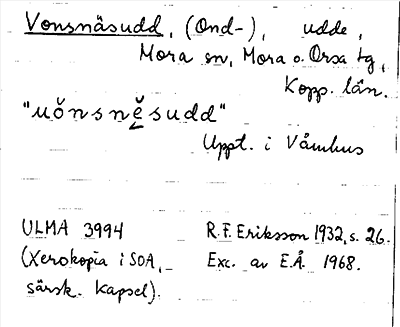 Vonsnäsudd, (Ond-), udde,
Mora sn, Mora o. Orsa tg,
Kopp. län.
"uǒnsnę̆sudd"
Uppt. i Våmhus
ULMA 3994
(Xerokopia i SOA,
särsk. kapsel).
R.F. Eriksson 1932, s. 26.
Exc. av E.Å. 1968.